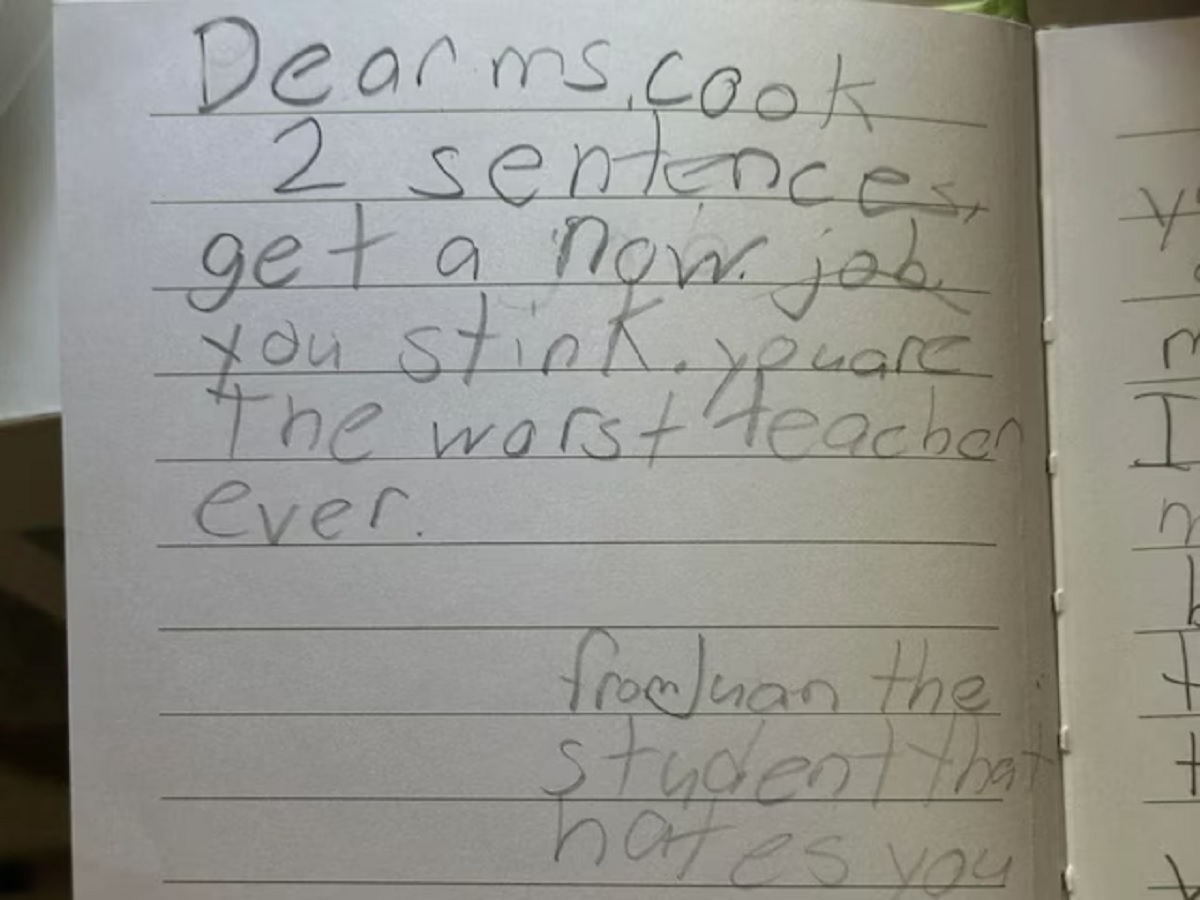 Dear ms. cook
2 sentences,
get a now job.
you stink. you are
The worst teacher
ever.
from Juan the
student that
hates you